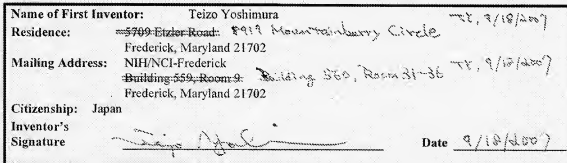 Name of First Inventor: Teizo Yoshimura
Residence: 5709 Etzler Road 8919 Mountainberry Circle TY, 9/18/2007
Frederick, Maryland 21702
Mailing Address: NIH/NCI-Frederick
Building 559, Room 9 Building 560, Room 31-36 TY, 9/18/2007
Frederick, Maryland 21702
Citizenship: Japan
Inventor's
Signature Teizo Yoshimura Date 9/18/2007